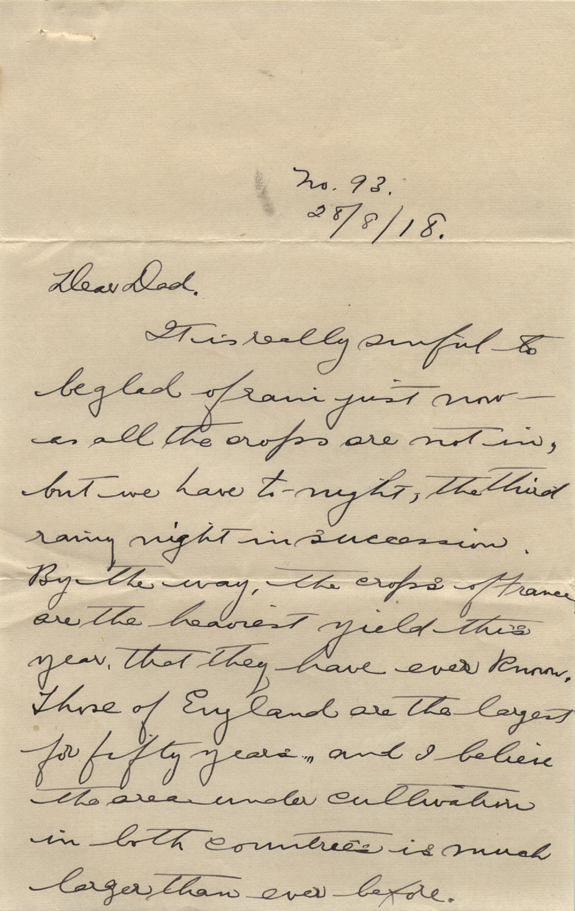 No. 93.
28/8/18.
Dear Dad.
It is really sinful to
be glad of rain just now —
as all the crops are not in,
but we have to-night, the third
rainy night in succession.
By the way, the crops of France
are the heaviest yield this
year, that they have ever known.
Those of England are the largest
for fifty years,, and I believe
the area under cultivation
in both countries is much
larger than ever before.